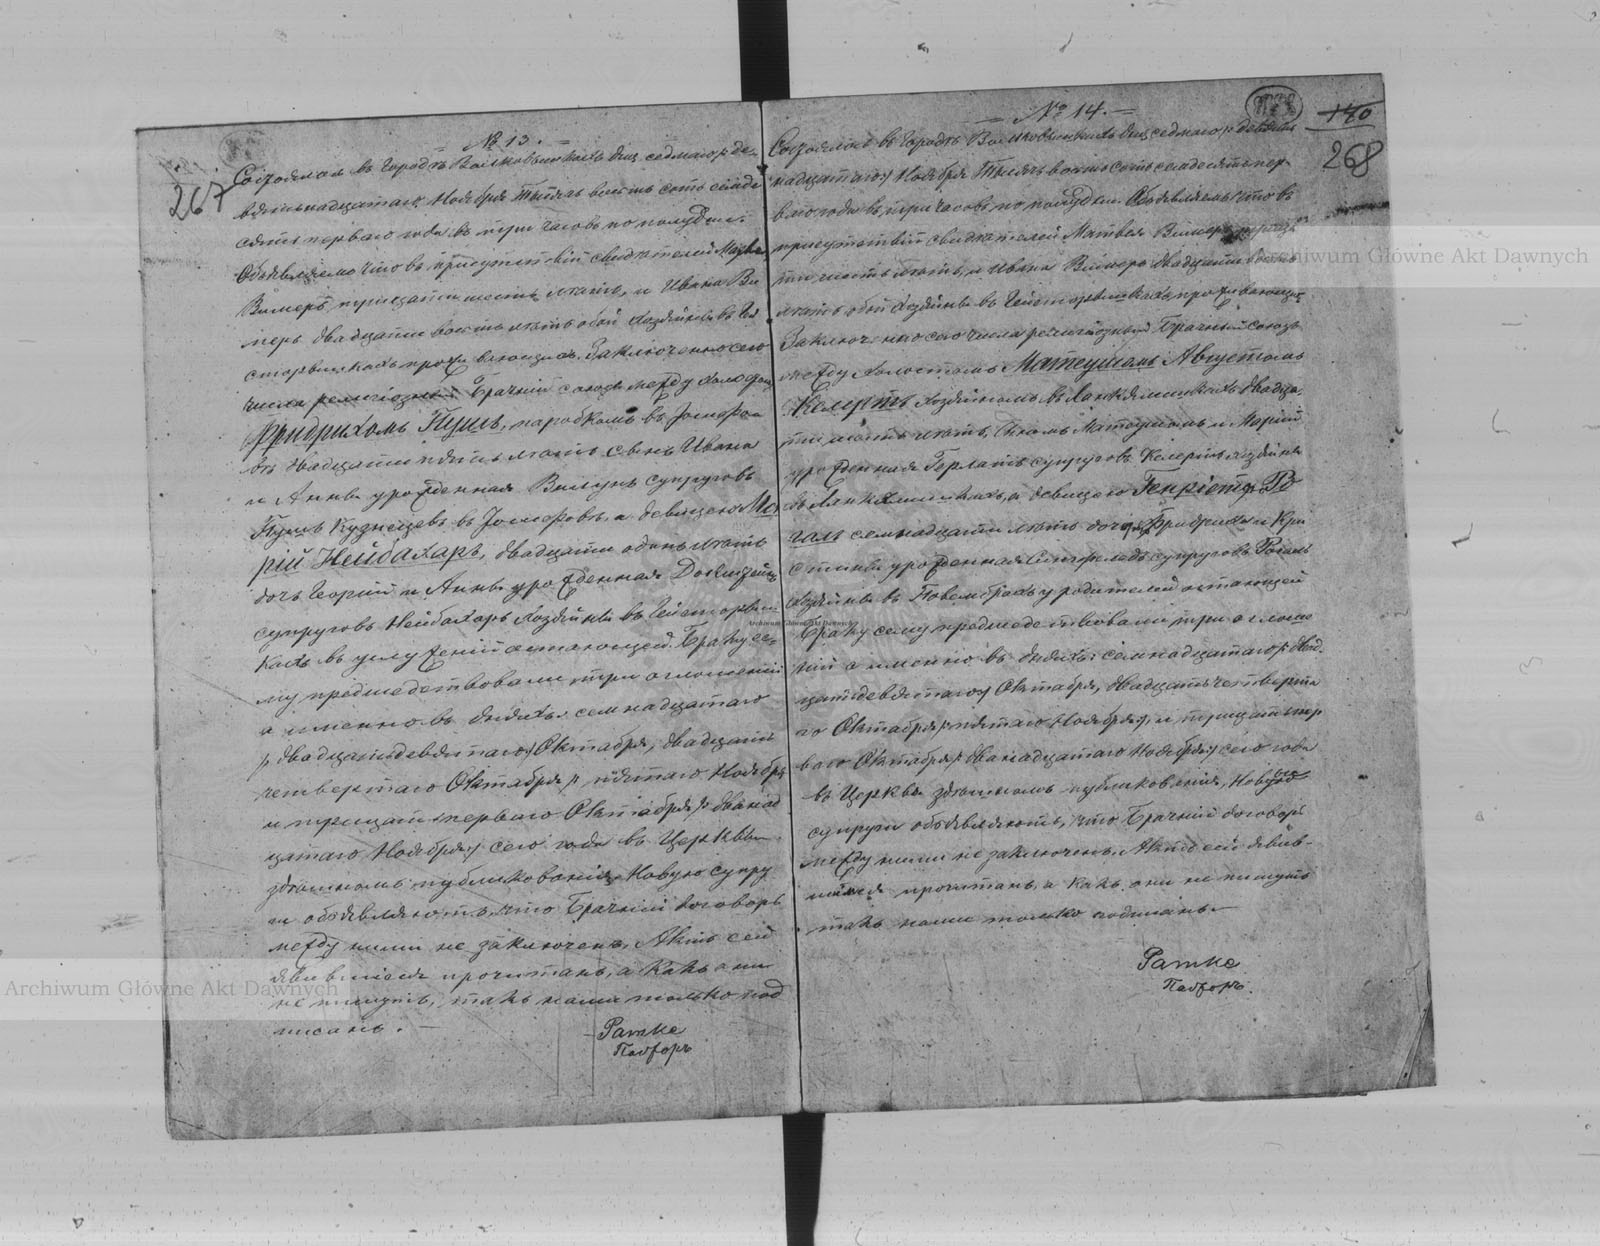 № 13.
267
Состоялось въ городѣ дня седмаго / де-
вятьнадцатаго / Ноября тысяча восемь сотъ семьде
сятъ перваго года въ три часовъ по полудни.
Объявляемъ что въ присутствіи свидѣтелей
Вимеръ, тридцати шесть лѣтъ, и Ивана Ви
меръ двадцати восемь лѣтъ обои хозяйновъ въ
проживающихъ, Заключенно сего
числа религіозный Брачный союзъ между холостымъ
Фридрихомъ Пушъ, паробкомъ въ
двадцати пять лѣтъ сынъ Ивана
и Анны урожденная супруговъ
Пушъ въ а девицею Ма
рій Нейбахаръ, двадцати одинъ лѣтъ
дочь Георгій и Анны урожденная
супруговъ Нейбахаръ хозяйны въ
кахъ въ остающей. Браку се
му предшедствовали три оглошеній
а именно въ дняхъ: семнадцатаго
/ двадцатьдевятаго / Октабря, двадцати
четвертаго Октабря / пятаго Ноября
и тридцать перваго Октабря / дванад
цатаго Ноября / сего года въ Церквы
здѣшномъ публикованія, Новую супру
и объявляютъ, что Брачный договоръ
между ними не заключенъ, Актъ сей
явившися прочитанъ, а какъ они
не пишутъ, такъ нами только под
писанъ. —
Ратке
Пасторъ
№ 14.
140
268
Состоялось въ городѣ дня седмаго / девять
надцатаго / Ноября тысяча восемь сотъ семьдесятъ пер-
ваго года въ три часовъ по полудни Объявляемъ что въ
присутствіи свидѣтелей Матвея Вимеръ тридца
ти шесть лѣтъ, и Ивана Вимеръ двадцати восемь
лѣтъ обои хозяйны въ проживающихъ
Заключенно сего числа религіозный Брачный союзъ
между холостымъ Матеушомъ Августомъ
Келертъ хозяйномъ въ двадца
ти лѣтъ, Сыномъ Матеушомъ и Марій
урожденная Герлатъ супруговъ Келертъ хозяйны
въ а девицею Генріетъ Ро
галъ семнадцати лѣтъ дочь Фридриха и Кри
стины урожденная супруговъ Рогалъ
хозяйны въ у родителей остающей
Браку сему предшедствовали три оглоше
ній а именно въ дняхъ: семнадцатаго / двад
цатьдевятаго / Октабря, двадцать четверта
го Октабря / пятаго Ноября /, и тридцать пер
ваго Октабря / дванадцатаго Ноября / сего года
въ Церквы здѣшномъ публикованія, Новую
супруги объявляютъ, что Брачный договоръ
между ними не заключенъ, Актъ сей явив-
шися прочитанъ, а какъ они не пишутъ
такъ нами только подписанъ. —
Ратке
Пасторъ.
Archiwum Główne Akt Dawnych
Archiwum Główne Akt Dawnych
Archiwum Główne Akt Dawnych